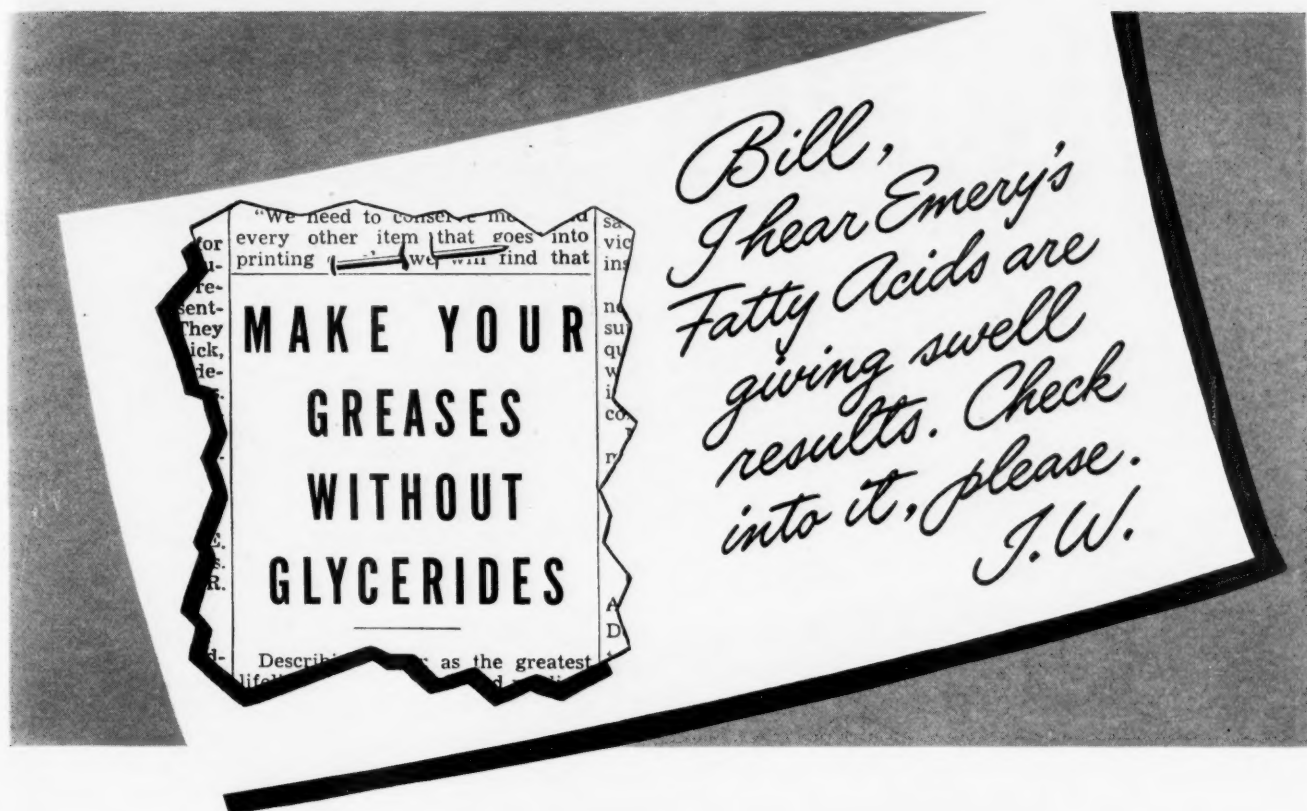 "We need to conserve
every other item that goes into
printing we will find that
MAKE YOUR
GREASES
WITHOUT
GLYCERIDES
as the greatest
for
re-
sent-
They
ick,
de-
Bill,
I hear Emery's
Fatty Acids are
giving swell
results. Check
into it, please.
J.W.